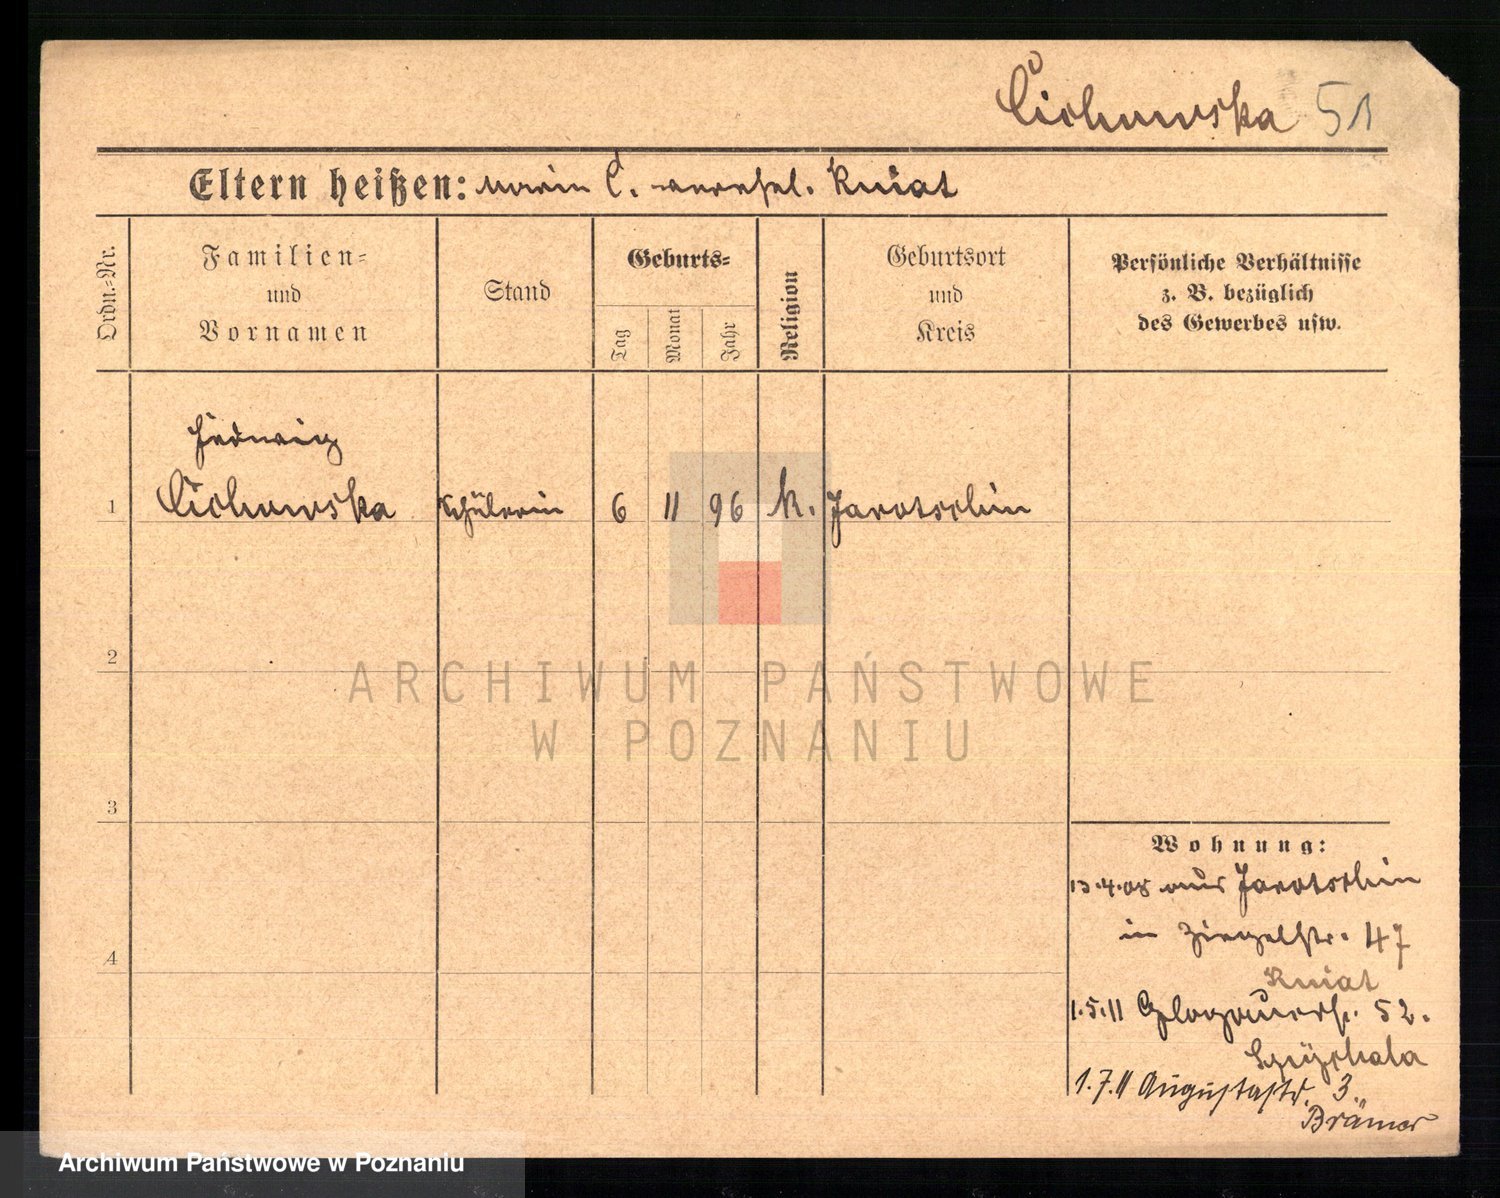 Cichowska 51
Eltern heißen: Maria C. verehel. Kniat
Ordn.-Nr.
Familien-
und
Vornamen
Stand
Geburts-
Tag
Monat
Jahr
Religion
Geburtsort
und
Kreis
Persönliche Verhältnisse
z. B. bezüglich
des Gewerbes usw.
Hedwig
1 Cichowska Schülerin 6 11 96 k. Jarotschin
2
3
4
Wohnung:
13.4.08 aus Jarotschin
in Ziegelstr. 47
Kniat
1.5.11 Glogauerstr. 52.
1.7.11 Augustastr. 3.
Brämer
ARCHIWUM PAŃSTWOWE
W POZNANIU
Archiwum Państwowe w Poznaniu